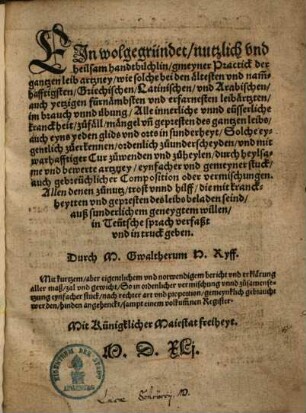 EIn wolgegründet/nutzlich vnd
heilsam handtbüchlin/gmeyner Practick der
gantzen leib artzney/wie solche bei den ältesten vnd nam̃
hafftigsten/Griechischen/Latinischen/vnd Arabischen/
auch yetzigen fürnämbsten vnd erfarnesten leibärtzten/
im brauch vnnd übung/Alle innerliche vnnd eüsserliche
kranckheit/zůfäll/mängel vñ gepresten des gantzen leibs/
auch eyns yeden glids vnd orts in sunderheyt/Solche ey-
gentlich zůerkennen/ordenlich zůunderscheyden/vnd mit
warhafftiger Cur zůwenden vnd zůheylen/durch heylsa-
me vnd bewerte artzney/eynfacher vnd gemeyner stuck/
auch gebürlicher Composition oder vermischungen.
Allen denen zůnutz/trost vnnd hülff/die mit kranck-
heytten vnd gepresten des leibs beladen seind/
auß sunderlichem geneygtem willen/
in Teütsche sprach verfaßt
vnd in truck geben.
Durch M. Gwaltherum H. Ryff.
Mit kurtzem/aber eigentlichem vnd notwendigem bericht vnd erklärung
aller maß/zal vnd gewicht/So in ordenlicher vermischung vnnd zůsamense-
tzung eynfacher stuck/nach rechter art vnd proportion/gemeynklich gebraucht
werden/hinden angehenckt/sampt einem volkumnen Register.
Mit Künigklicher Maiestat freiheyt.
M. D. XLj.